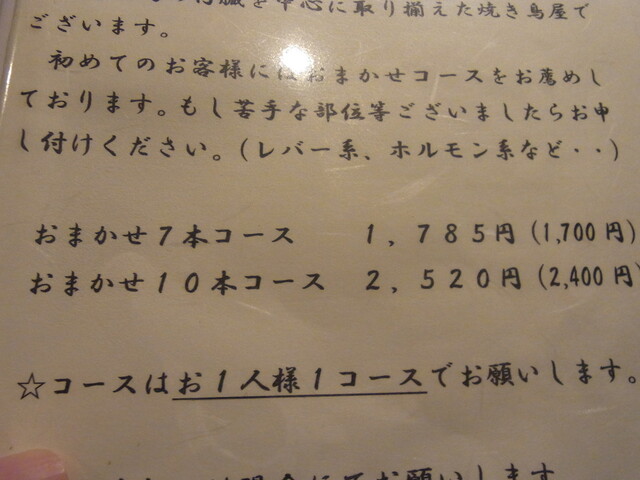 内臓を中心に取り揃えた焼き鳥屋で
ございます。
初めてのお客様にはおまかせコースをお薦めし
ております。もし苦手な部位等ございましたらお申
し付けください。(レバー系、ホルモン系など・・)
おまかせ7本コース 1,785円(1,700円)
おまかせ10本コース 2,520円(2,400円
☆コースはお1人様1コースでお願いします。
お願いします